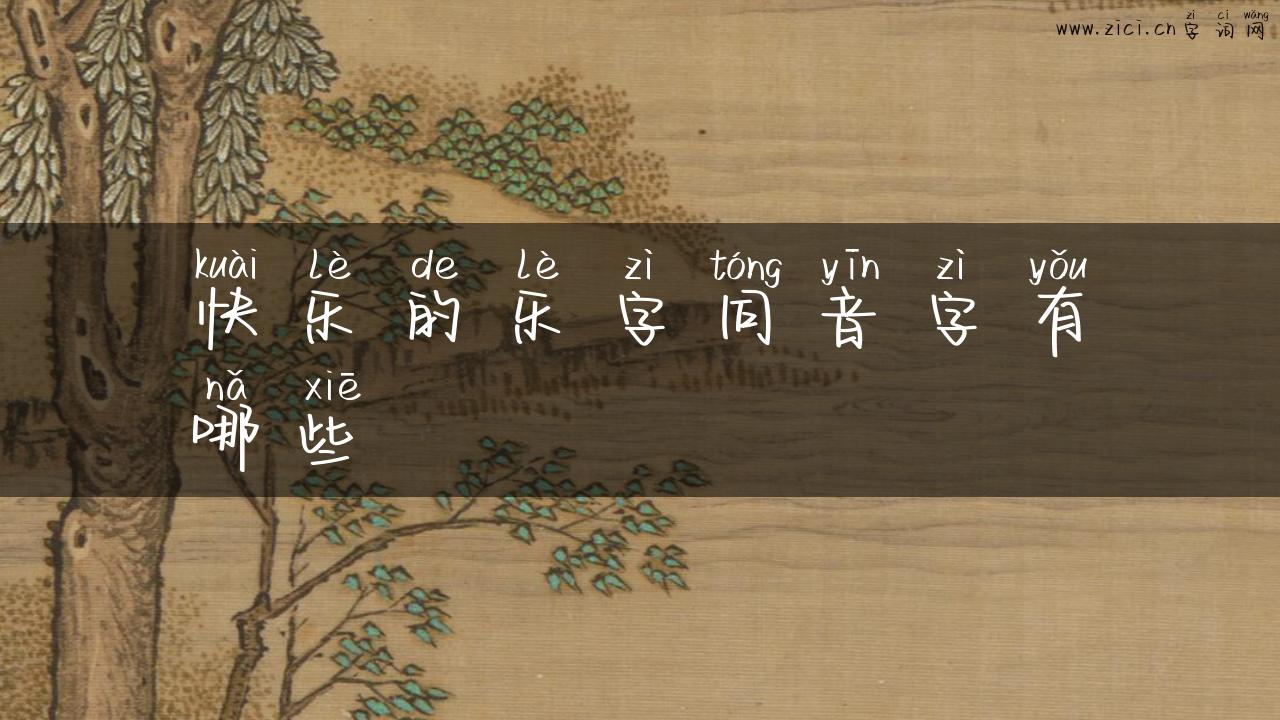 zì cí wǎng
www.zici.cn 字词网
kuài lè de lè zì tóng yīn zì yǒu
快乐的乐字同音字有
nǎ xiē
哪些